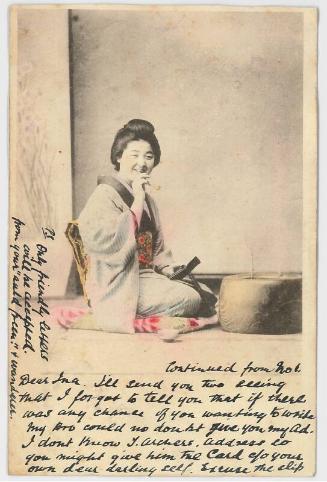 Continued from No 1.
Dear Ina. I'll send you two seeing
that I forgot to tell you that if there
was any chance of you wanting to write
my bro could no doubt give you my Ad.
I dont know J. Archers, address so
you might give him the Card of/o your
own dear darling self. Excuse the slip
PS Only friendly letters
will be accepted.
from your "auld freen" &